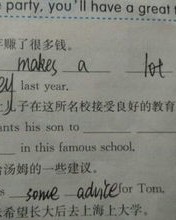 party, you'll have a great
赚了很多钱。
makes a lot
last year.
儿子在这所名校接受良好的教育
ants his son to
in this famous school.
给汤姆的一些建议。
some advice for Tom.
希望长大后去上海上大学。